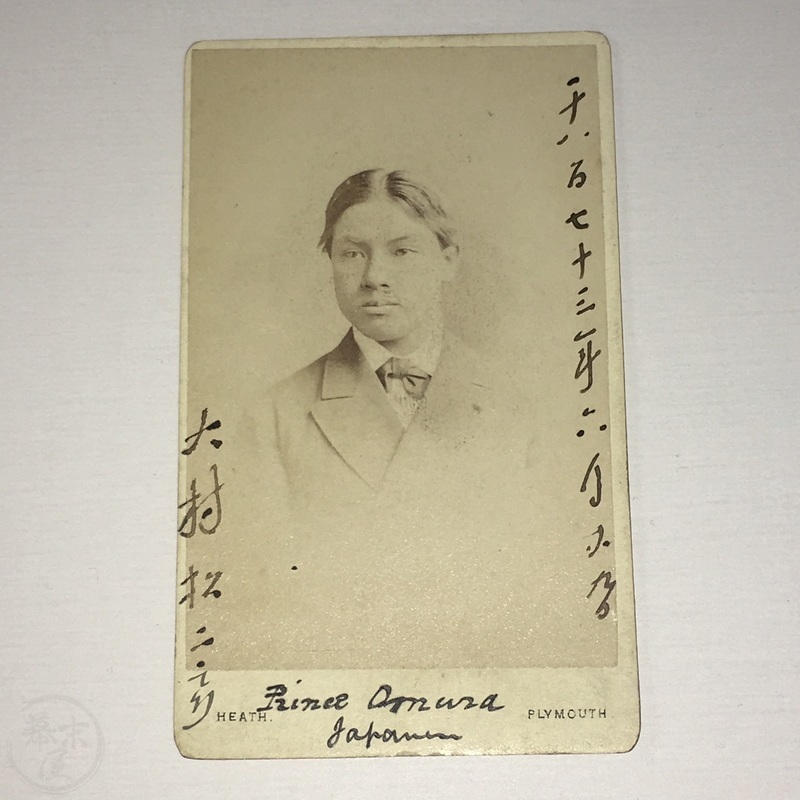 千八百七十三年六月
大村松二郎
Prince Omura
HEATH. PLYMOUTH
Japanese
幕末屋